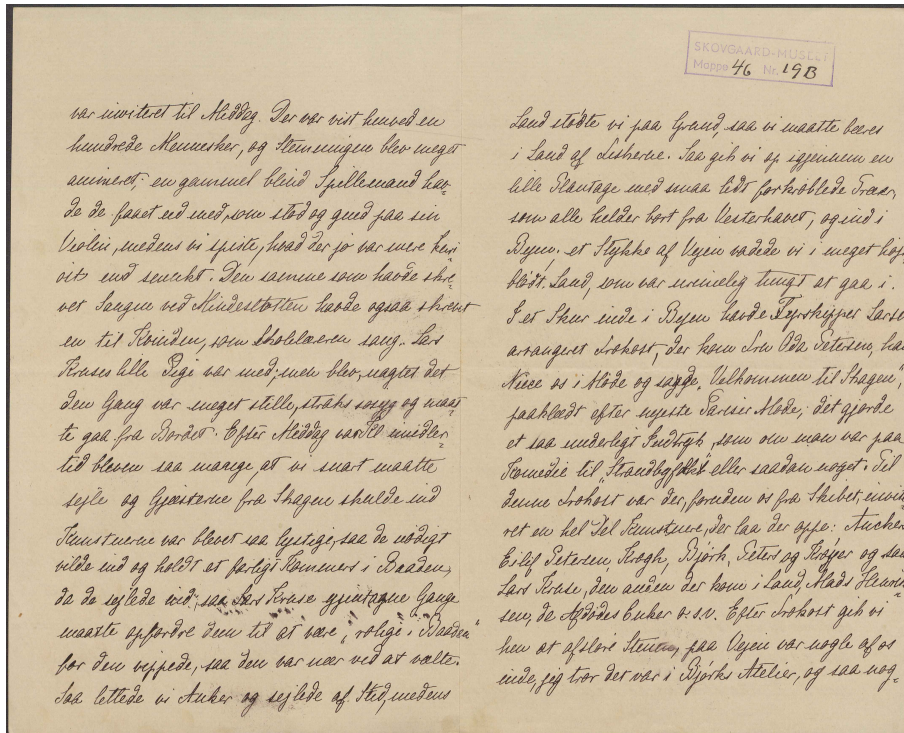 SKOVGAARD-MUSEET
Mappe 46 Nr. 19B
var inviteret til Middag. Der var vist henved en
hundrede Mennesker, og Stemningen blev meget
animeret; en gammel blind Spillemand hav-
de de faaet ud med, som stod og gned paa sin
Violin, medens vi spiste, hvad der jo var mere kuri
øst end smukt. Den samme som havde skre-
vet Sangen ved Mindestøtten havde ogsaa skrevet
en til Kvinden, som Skolelæreren sang. Lars
Kruses lille Pige var med; men blev, uagtet det
den Gang var meget stille, straks søsyg og maat-
te gaa fra Bordet. Efter Middag var Kl imidler-
tid bleven saa mange, at vi snart maatte
sejle og Gjæsterne fra Skagen skulde ind
Kunstnerne var blevet saa lystige, saa de nødigt
vilde ind og holdt et farligt Kommers i Baaden,
da de sejlede ind, saa Lars Kruse gjentagne Gange
maatte opfordre dem til at være "rolige i Baaden"
for den vippede, saa den var nær ved at vælte.
Saa lettede vi Anker og sejlede af Sted, medens
Land stødte vi paa Grund, saa vi maatte bæres
i Land af Fiskerne. Saa gik vi op igjennem en
lille Plantage med smaa lidt forkrøblede Træer,
som alle helder bort fra Vesterhavet, og ind i
Byen. et Stykke af Vejen vadede vi i meget højt
blødt Sand, som var urimelig tungt at gaa i.
I et Skur inde i Byen havde Fyrskipper Larsen
arrangeret Frokost, der kom Frk Oda Petersen, hans
Niece os i Møde og sagde "Velkommen til Skagen",
paaklædt efter nyeste Pariser Mode; det gjorde
et saa underligt Indtryk, som om man var paa
Komedie til "Strandbyfolket" eller saadan noget. Til
denne Frokost var der, foruden os fra Skibet, invite
ret en hel Del Kunstnere, der laa der oppe: Ancher
Eilif Petersen, Krogh, Bjørk, Peters og Krøyer og saa
Lars Kruse, den anden der kom i Land Mads Henrik
sen, de Afdødes Enker o.s.v. Efter Frokost gik vi
hen at afsløre Stenen, paa Vejen var nogle af os
inde, jeg tror det var i Bjørks Atelier, og saa nog-